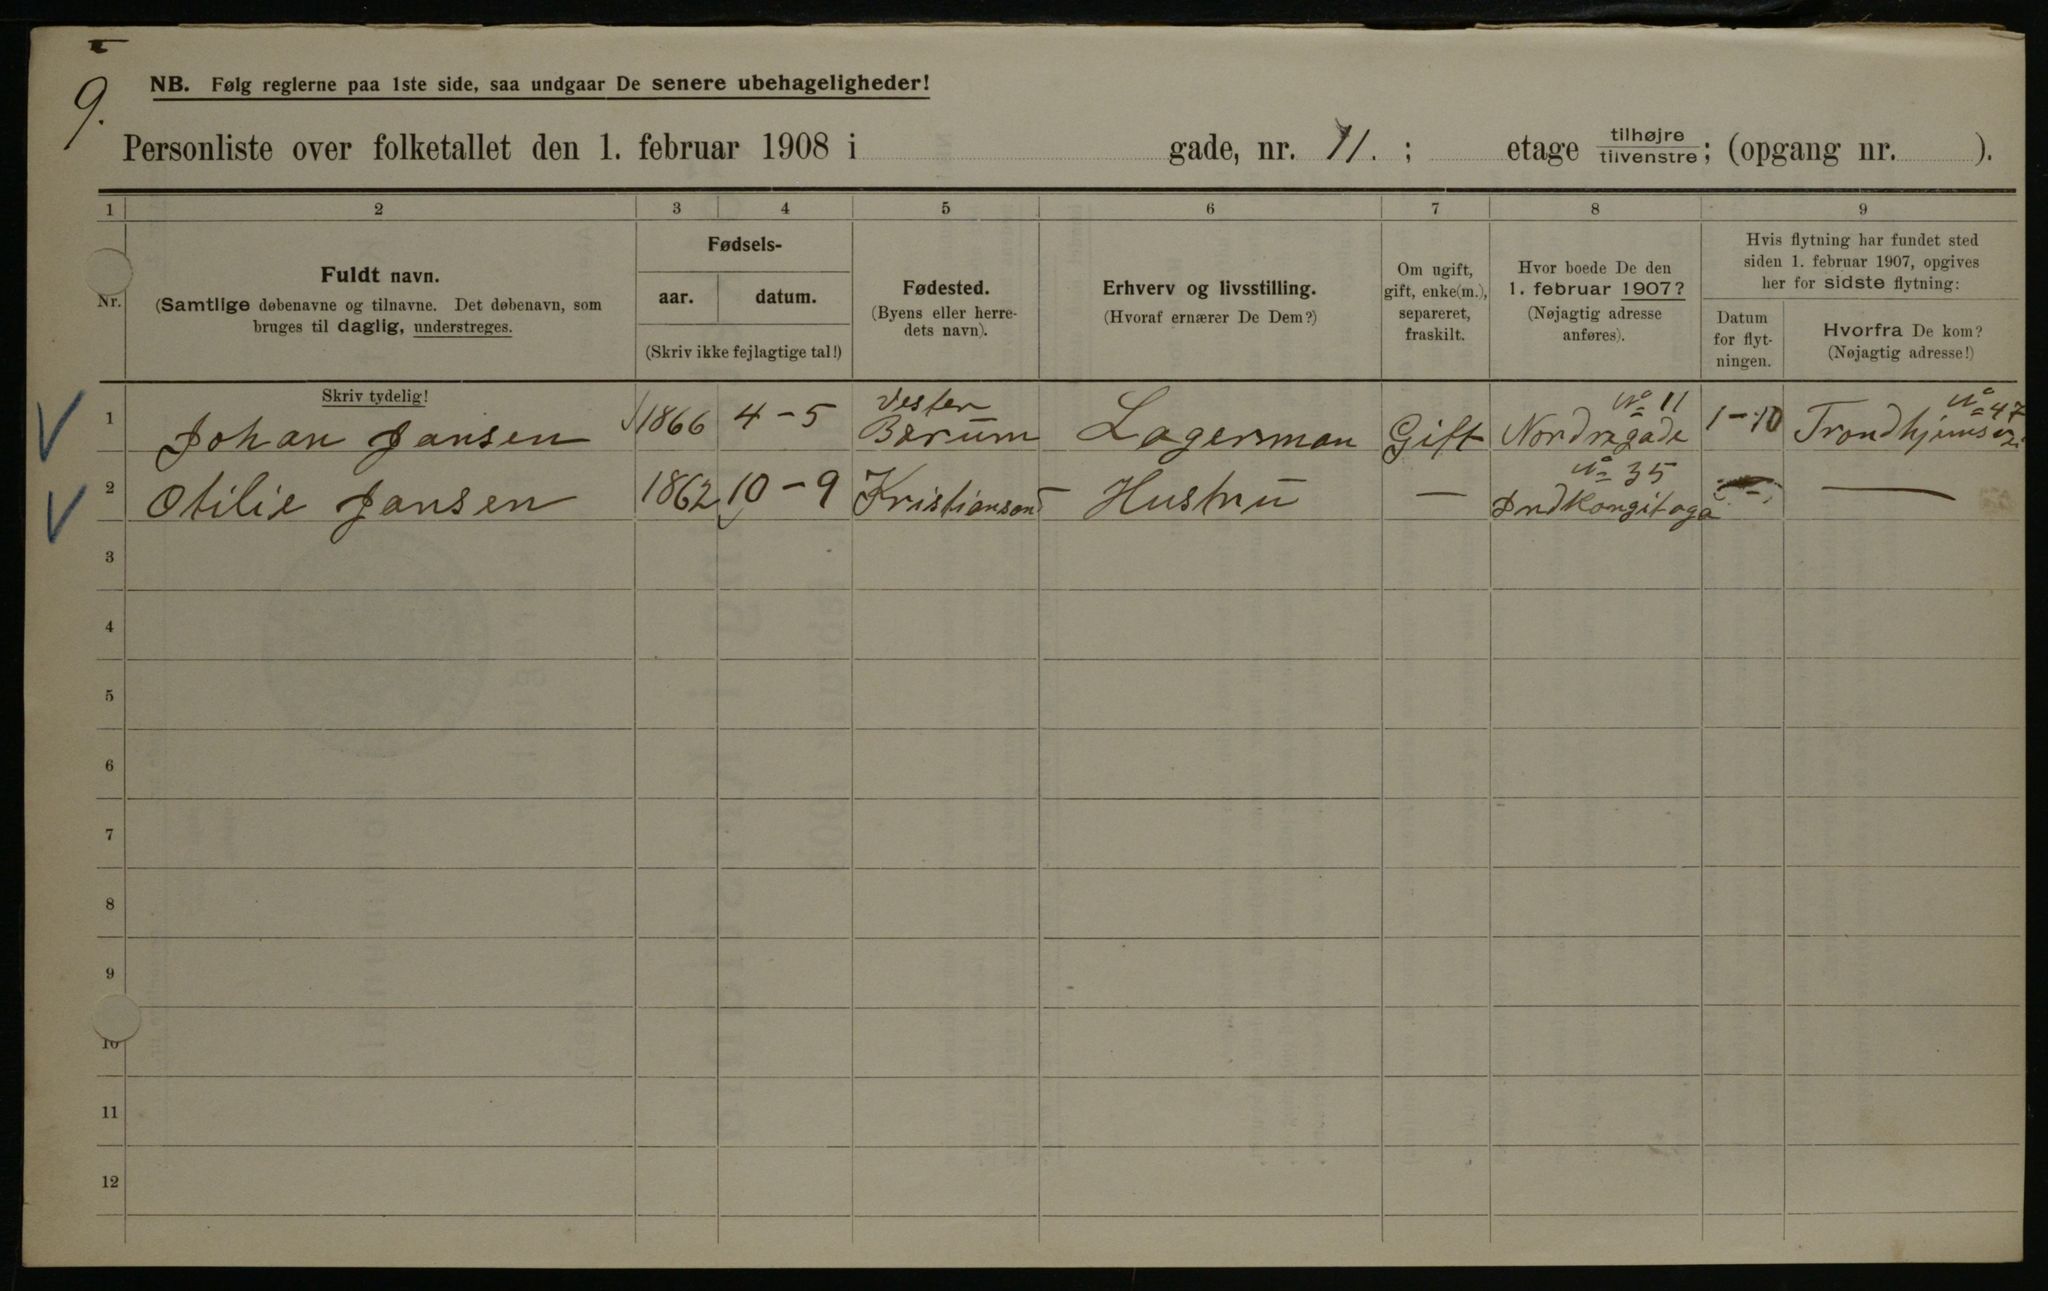 9.
NB. Følg reglerne paa 1ste side, saa undgaar De senere ubehageligheder!
Personliste over folketallet den 1. februar 1908 i gade, nr. 11. ; etage tilhøjre / tilvenstre; (opgang nr. ).
1 2 3 4 5 6 7 8 9
Nr.
Fuldt navn.
(Samtlige døbenavne og tilnavne. Det døbenavn, som
bruges til daglig, understreges.
Fødsels-
aar. datum.
(Skriv ikke fejlagtige tal!)
Fødested.
(Byens eller herre-
dets navn).
Erhverv og livsstilling.
(Hvoraf ernærer De Dem?)
Om ugift,
gift, enke(m.),
separeret,
fraskilt.
Hvor boede De den
1. februar 1907?
(Nøjagtig adresse
anføres).
Hvis flytning har fundet sted
siden 1. februar 1907, opgives
her for sidste flytning:
Datum
for flyt-
ningen.
Hvorfra De kom?
(Nøjagtig adresse!)
Skriv tydelig!
Vester No 11 No 47
1 Johan Jansen 1866 4-5 Bærum Lagerman Gift Nordregade 1-10 Trondhjems
No 35
2 Otilie Jansen 1862 10-9 Kristiansand Hustru —
3
4
5
6
7
8
9
10
11
12